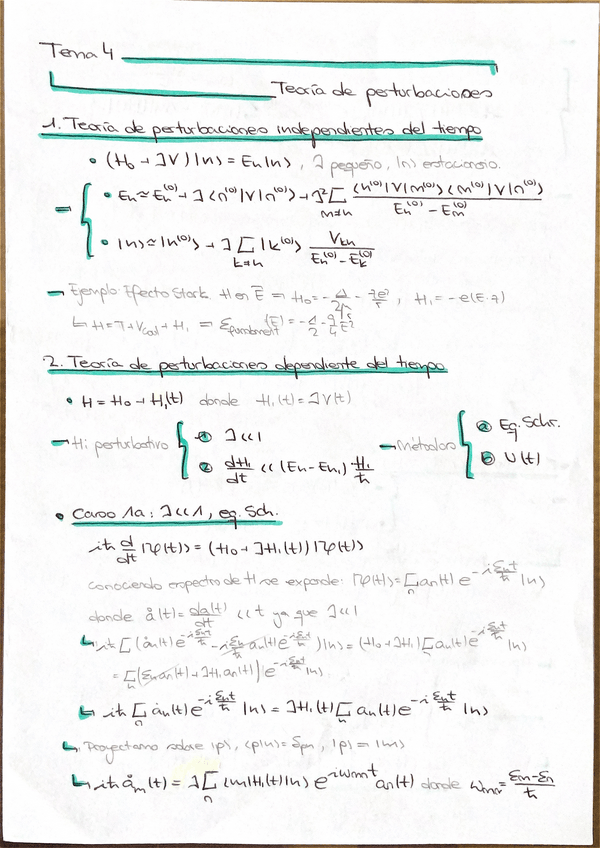 Tema 4
Teoría de perturbaciones
1. Teoría de perturbaciones independientes del tiempo
• (H₀ + λV)|n⟩ = Eₙ|n⟩, λ pequeño, |n⟩ estacionario.
• Eₙ ≃ Eₙ⁽⁰⁾ + λ⟨n⁽⁰⁾|V|n⁽⁰⁾⟩ + λ² Σ_{m≠n} ⟨n⁽⁰⁾|V|m⁽⁰⁾⟩⟨m⁽⁰⁾|V|n⁽⁰⁾⟩ / (Eₙ⁽⁰⁾ - Eₘ⁽⁰⁾)
• |n⟩ ≃ |n⁽⁰⁾⟩ + λ Σ_{k≠n} |k⁽⁰⁾⟩ Vₖₙ / (Eₙ⁽⁰⁾ - Eₖ⁽⁰⁾)
→ Ejemplo: Efecto Stark. H en E ⇒ H₀ = -
, H₁ = -e(E·r)
↳ H = T + V + H₁ ⇒
2. Teoría de perturbaciones dependiente del tiempo
• H = H₀ + H₁(t) donde H₁(t) = λV(t)
→ H₁ perturbativo { ① λ<<1
② dH₁/dt << (Eₙ - Eₙ₁) H₁/ħ
→ Métodos { ⓐ Eq. Schr.
ⓑ U(t)
• Caso 1a: λ<<1, eq. Sch.
iħ d/dt |ψ(t)⟩ = (H₀ + λH₁(t))|ψ(t)⟩
conociendo espectro de H se expande: |ψ(t)⟩ = Σₙ aₙ(t) e^{-i εₙt/ħ} |n⟩
donde ȧ(t) = da(t)/dt << t ya que λ<<1
↳ iħ Σ (ȧₙ(t) e^{-i εₙt/ħ} - i εₙ/ħ aₙ(t) e^{-i εₙt/ħ})|n⟩ = (H₀ + λH₁) Σ aₙ(t) e^{-i εₙt/ħ} |n⟩
= Σₙ (εₙ aₙ(t) + λH₁ aₙ(t)) e^{-i εₙt/ħ} |n⟩
↳ iħ Σₙ ȧₙ(t) e^{-i εₙt/ħ} |n⟩ = λH₁(t) Σₙ aₙ(t) e^{-i εₙt/ħ} |n⟩
↳ Proyectamo sobre |p⟩, ⟨p|n⟩ = δₚₙ, |p⟩ = |m⟩
↳ iħ ȧₘ(t) = λ Σₙ ⟨m|H₁(t)|n⟩ e^{iωₘₙt} aₙ(t) donde ωₘₙ = (εₘ - εₙ)/ħ